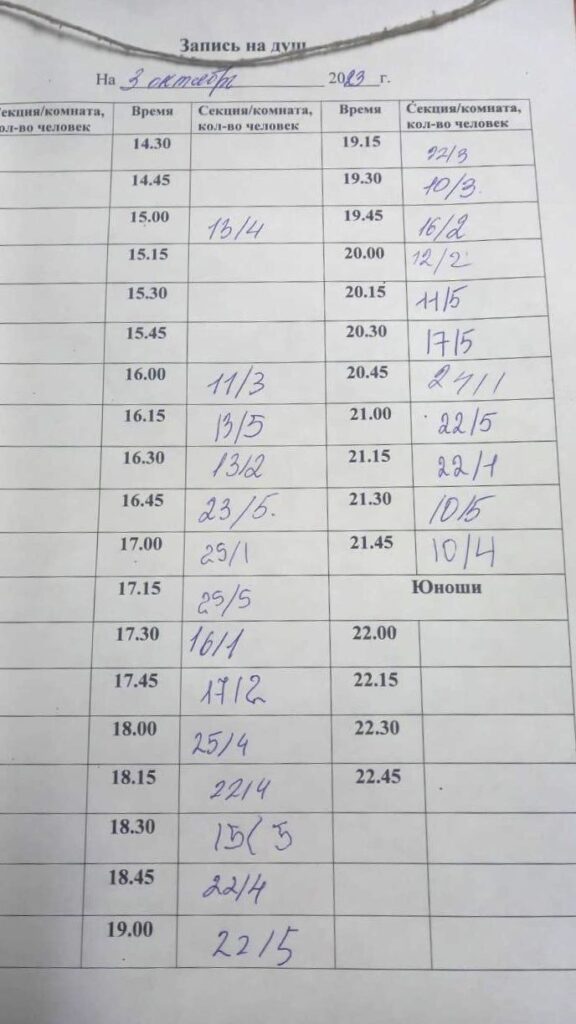 Запись на душ
На 3 октябр 2023 г.
Секция/комната, Время Секция/комната, Время Секция/комната,
кол-во человек кол-во человек кол-во человек
14.30 19.15 22/3
14.45 19.30 10/3.
15.00 13/4 19.45 16/2
15.15 20.00 12/2
15.30 20.15 11/5
15.45 20.30 17/5
16.00 11/3 20.45 24/1
16.15 13/5 21.00 22/5
16.30 13/2 21.15 22/1
16.45 23/5. 21.30 10/5
17.00 25/1 21.45 10/4
17.15 25/5 Юноши
17.30 16/1 22.00
17.45 17/2 22.15
18.00 25/4 22.30
18.15 22/4 22.45
18.30 15/5
18.45 22/4
19.00 22/5